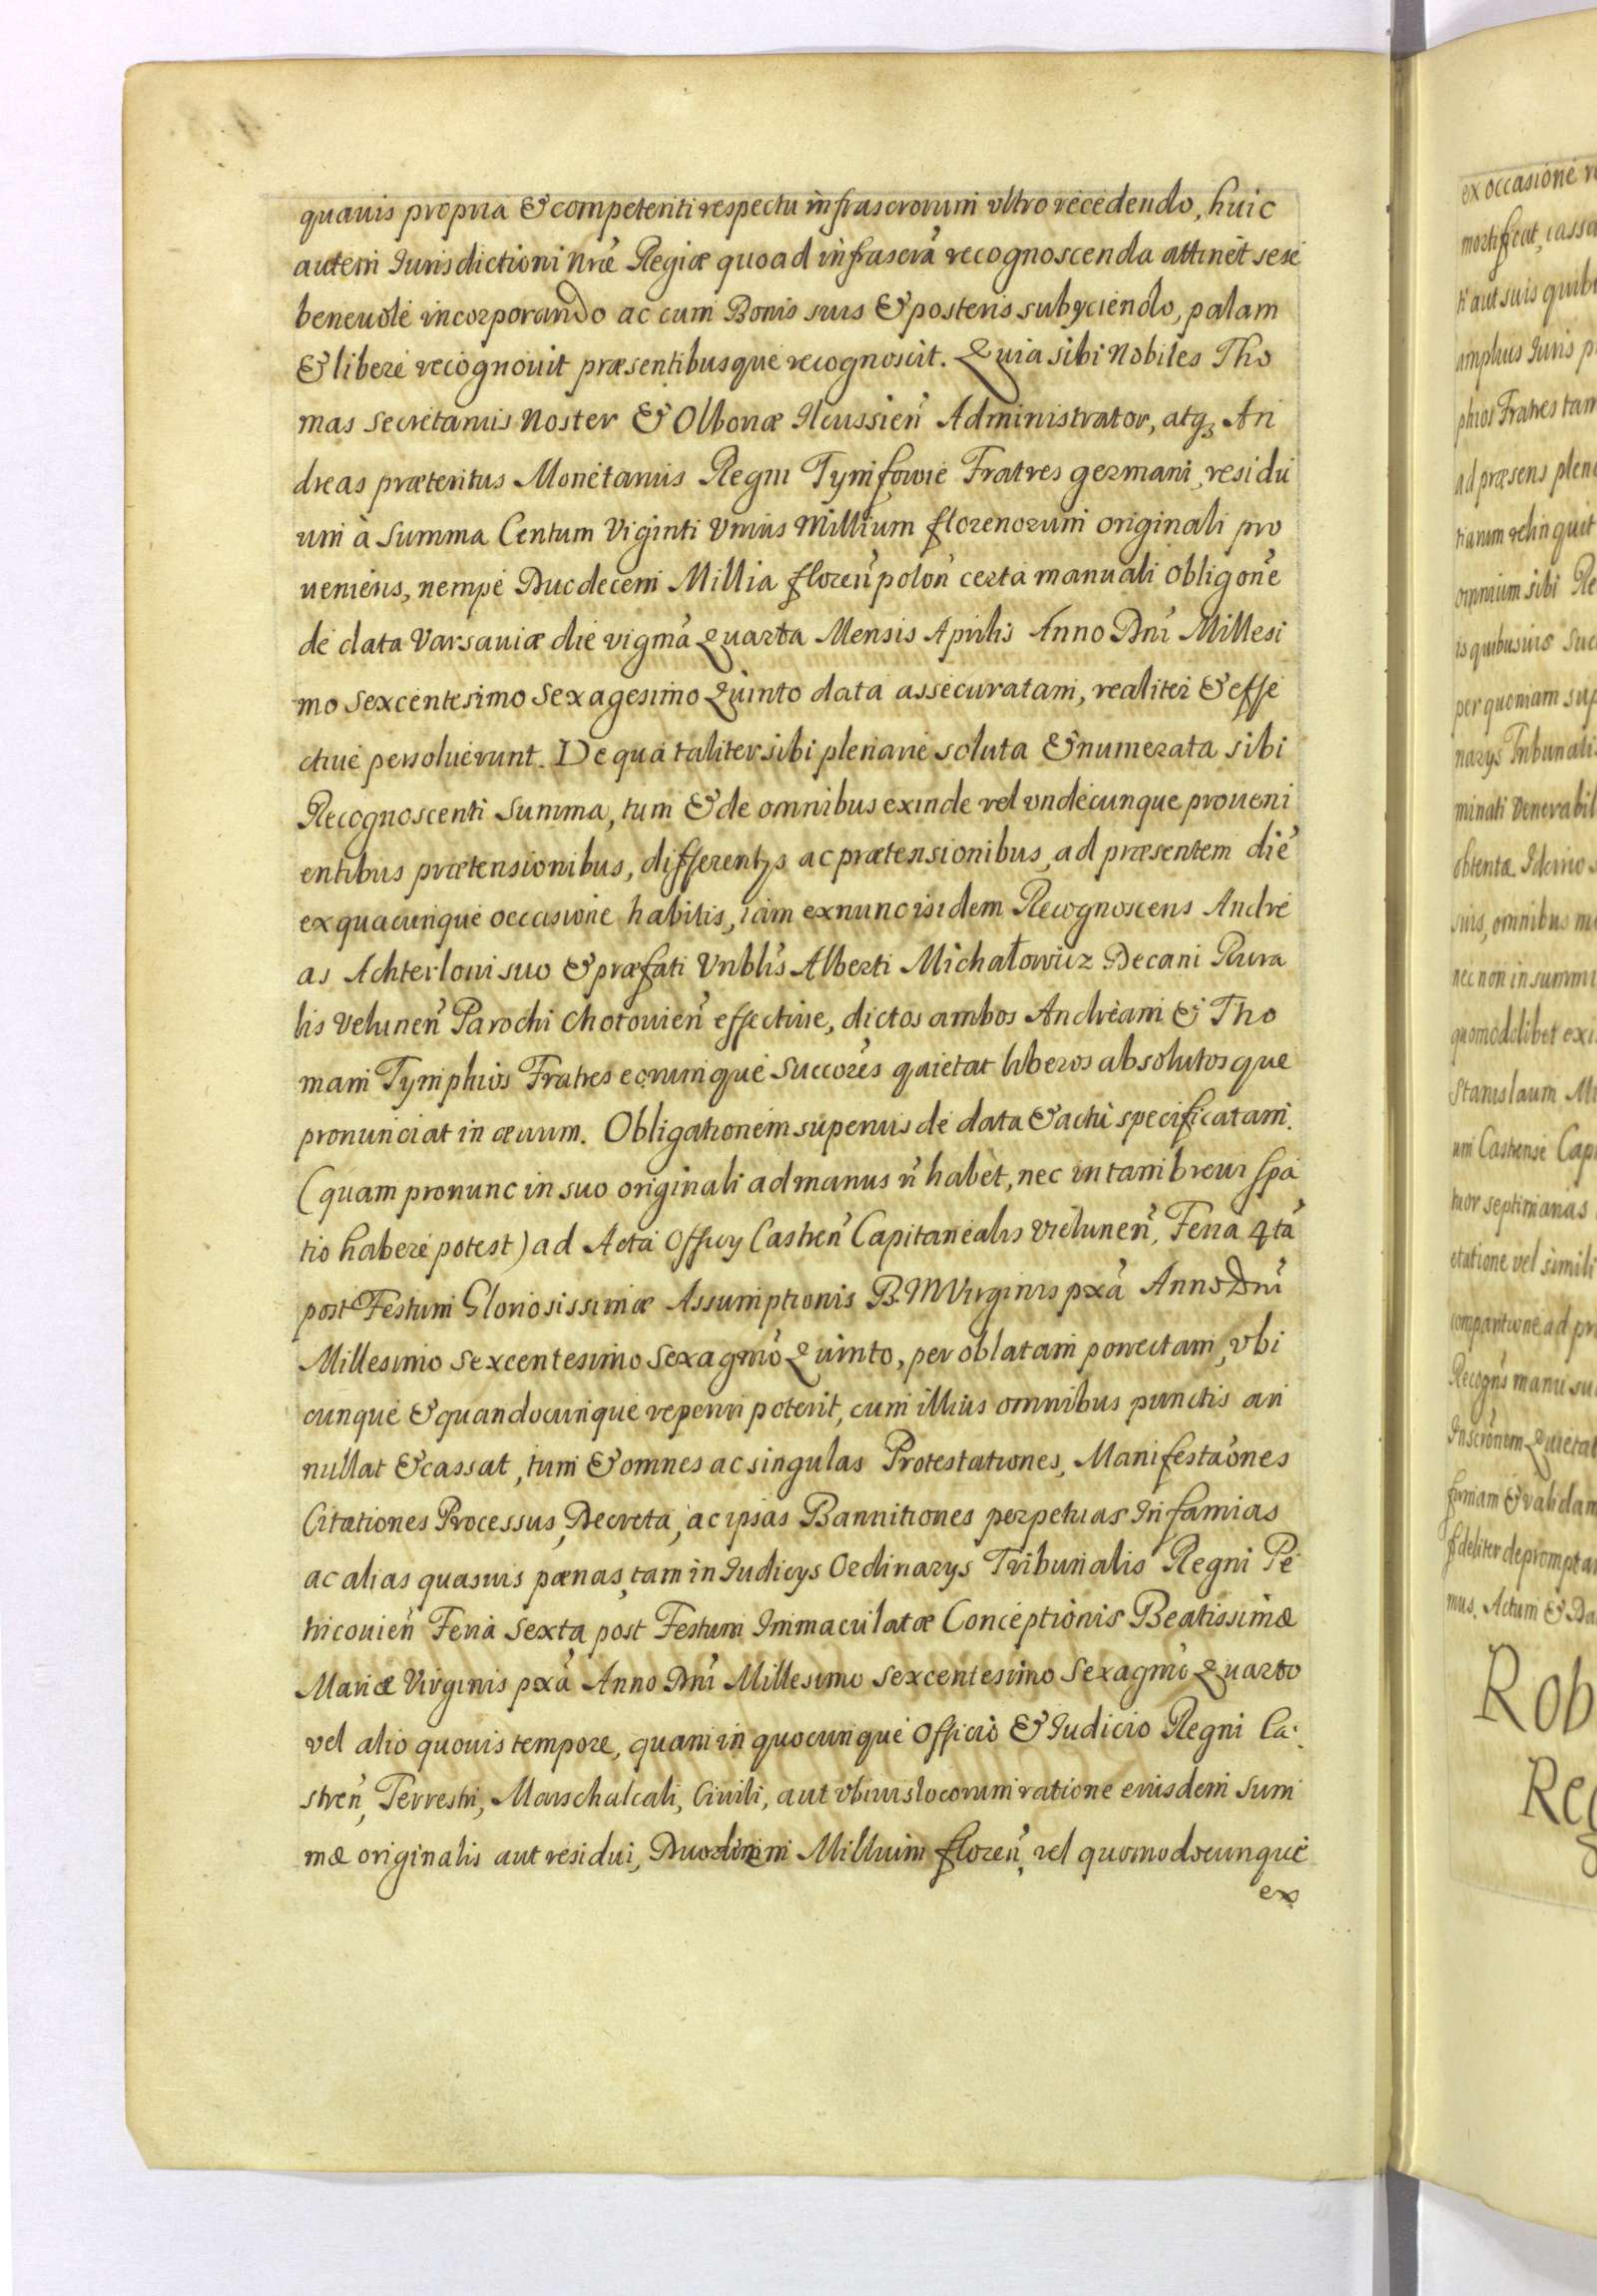 quauis propria & competenti respectu infrascrorum vltro recedendo, huic
autem Jurisdictioni Nrae Regiae quoad infrascra recognoscenda attinet sese
beneuole incorporando ac cum Bonis suis & posteris subyciendo, palam
& libere recognouit praesentibusque recognoscit. Quia sibi Nobiles Tho
mas Secretarius Noster & Olbonae Ilcussien Administrator, atq3 An
dreas praeteritus Monetarius Regni Tymfowie Fratres germani, residu
um à Summa Centum Viginti Vnius Millium florenorum originali pro
ueniens, nempe Duodecem Millia floren polon certa manuali Obligone
de data Varsauiae die vigma Quarta Mensis Aprilis Anno Dni Millesi
mo Sexcentesimo Sexagesimo Quinto data assecuratam, realiter & effe
ctiue persoluerunt. De qua taliter sibi plenarie soluta & numerata sibi
Recognoscenti Summa, tum & de omnibus exinde vel vndecunque proueni
entibus praetensionibus, differentys ac praetensionibus, ad praesentem die
ex quacunque occasione habitis, iam exnunc isidem Recognoscens Andre
as Achterloui suo & praefati Vnblis Alberti Michałowicz Decani Rura
lis Velunen Parochi Chotouien effectiue, dictos ambos Andream & Tho
mam Tymphios Fratres eorumque Succores quietat liberos absolutosque
pronunciat in aeuum. Obligationem superius de data & actu specificatam
(quam pronunc in suo originali ad manus n habet, nec in tam breui spa
tio habere potest) ad Acta Officy Castren Capitanealis Vielunen, Feria 4ta
post Festum Gloriosissimae Assumptionis B. M Virginis pxa Anno Dni
Millesimo Sexcentesimo Sexagmo Quinto, per oblatam porrectam, vbi
cunque & quandocunque reperiri poterit, cum illius omnibus punctis an
nullat & cassat, tum & omnes ac singulas Protestationes, Manifestaones
Citationes Processus, Decreta, ac ipsas Bannitiones perpetuas Infamias
ac alias quasuis paenas, tam in Judicys Ordinarys Tribunalis Regni Pe
tricouien Feria Sexta post Festum Immaculatae Conceptionis Beatissimae
Mariae Virginis pxa Anno Dni Millesimo Sexcentesimo Sexagmo Quarto
vel alio quouis tempore, quam in quocunque Officio & Judicio Regni Ca:
stren, Terrestri, Marschalcali, Ciuili, aut vbiuis locorum ratione eiusdem Sum
mae originalis aut residui, Duodecim Millium floren, vel quomodocunque
ex
ex occasione
mortificat, cassa
ti aut suis quib
amplius Juris p
phios Fratres tam
ad praesens plen
tianum relinquit
omnium sibi Re
is quibusuis Suc
per quoniam sup
narys Tribunali
minati Venerabil
obtentae Idcirco
suis, omnibus
nec non in summi
quomodolibet exi
Stanislaum Mi
um Castrense Cap
tuor septimanas
etatione vel simili
comparitione ad pr
Recogns manu su
Inscronem Quietat
firmam & validam
fideliter depromptam
mus. Actum & Da
Rob
Reg